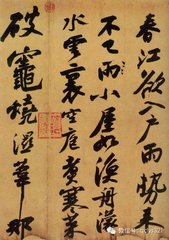 春江欲入户雨勢来
不已雨小屋如漁舟濛
水雲裏空庖煮寒菜
破竈燒濕葦那
微信号